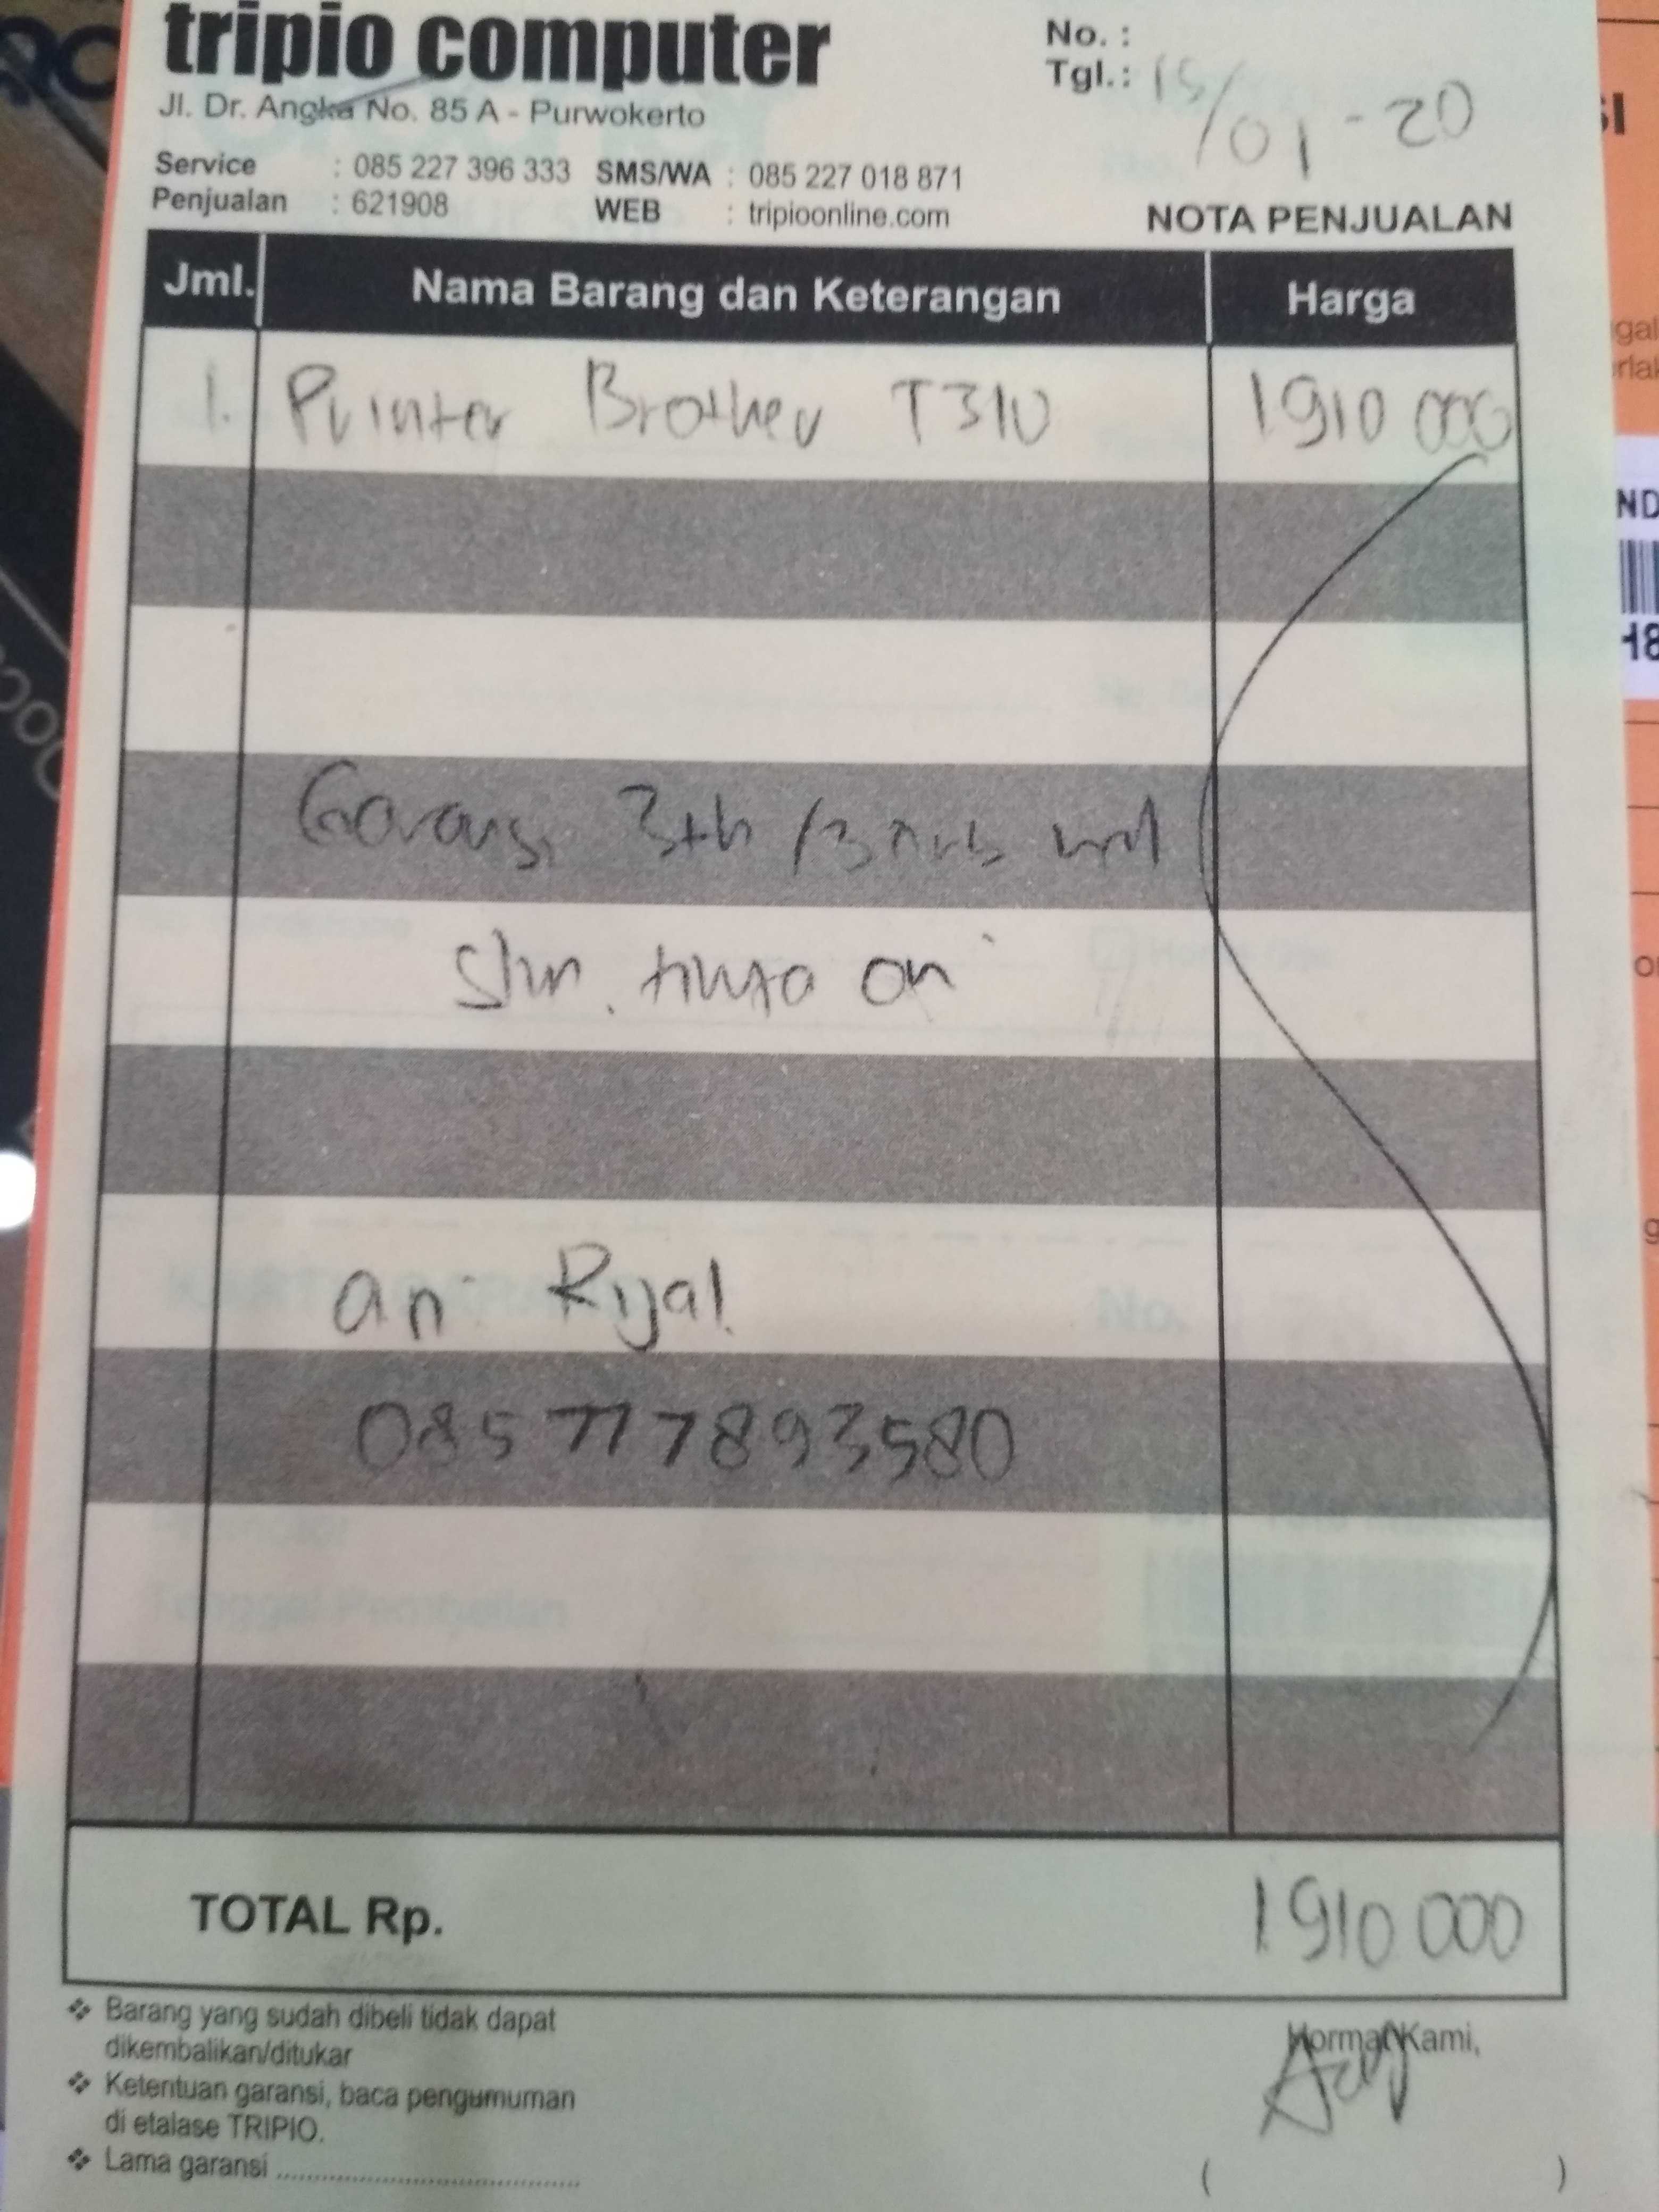 tripio computer
Jl. Dr. Angka No. 85 A - Purwokerto
No. :
Tgl.: 15/01-20
Service : 085 227 396 333 SMS/WA : 085 227 018 871
Penjualan : 621908 WEB : tripioonline.com
NOTA PENJUALAN
Jml. Nama Barang dan Keterangan Harga
1. Printer Brother T310 1910 000
Garansi 3th /3
tinta ori
an. Rijal
085777893580
TOTAL Rp. 1910 000
Barang yang sudah dibeli tidak dapat
dikembalikan/ditukar
Ketentuan garansi, baca pengumuman
di etalase TRIPIO.
Lama garansi
Hormat Kami,
( )